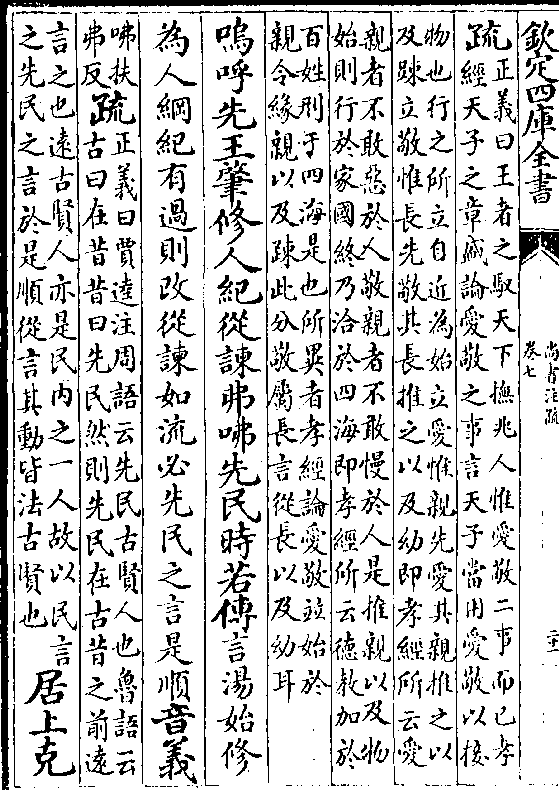 欽定四庫全書
尚書注疏
卷七
疏
正義曰王者之馭天下撫兆人惟愛敬二事而已孝
經天子之章盛論愛敬之事言天子當用愛敬以接
物也行之所立自近為始立愛惟親先愛其親推之以
及踈立敬惟長先敬其長推之以及幼即孝經所云愛
親者不敢惡於人敬親者不敢慢於人是推親以及物
始則行於家國終乃洽於四海即孝經所云德教加於
百姓刑于四海是也所異者孝經論愛敬竝始於
親令緣親以及踈此分敬屬長言從長以及幼耳
嗚呼先王肇修人紀從諫弗咈先民時若傳言湯始修
為人綱紀有過則改從諫如流必先民之言是順音義
咈扶
弗反
疏
正義曰賈逵注周語云先民古賢人也魯語云
古曰在昔昔曰先民然則先民在古昔之前遠
言之也遠古賢人亦是民內之一人故以民言
之先民之言於是順從言其動皆法古賢也
居上克